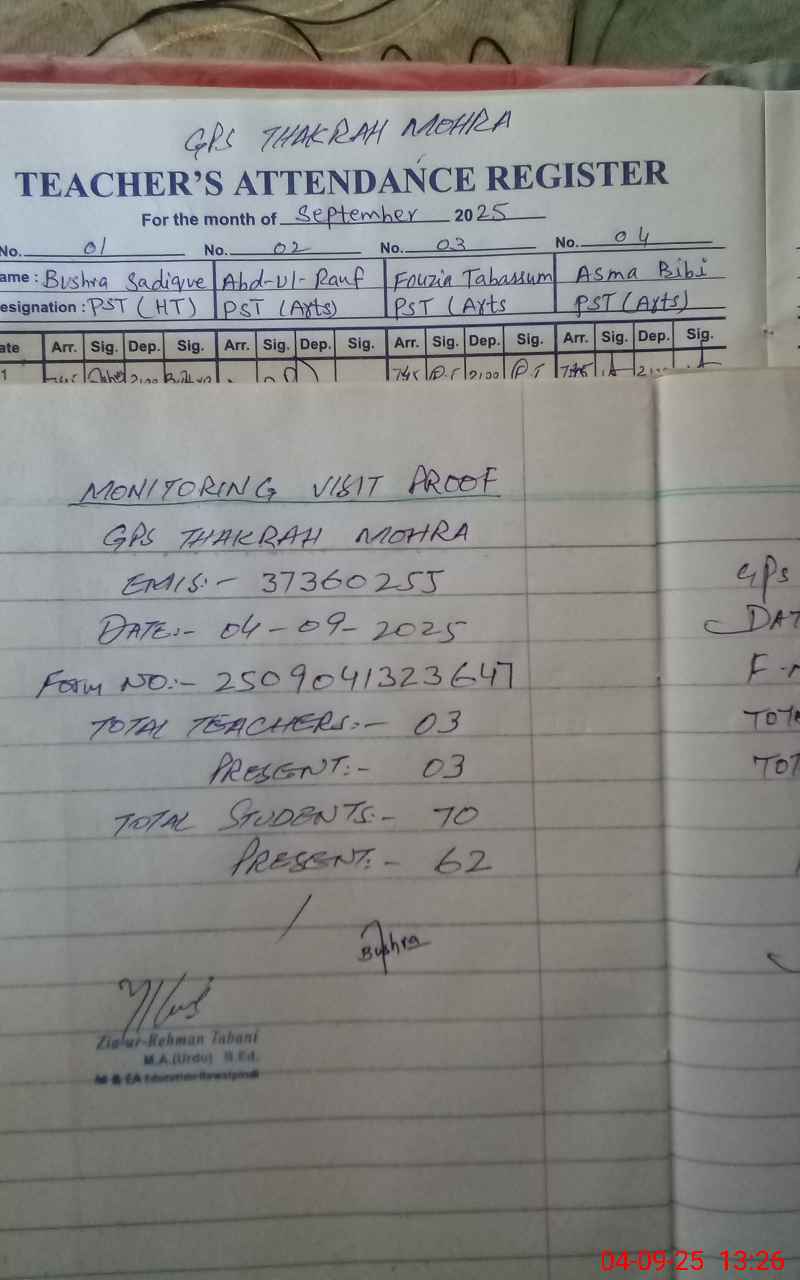 GPS THAKRAH MOHRA
TEACHER'S ATTENDANCE REGISTER
For the month of September 2025
No. 01 No. 02 No. 03 No. 04
ame : Bushra Sadique Abd-ul-Rauf Fouzia Tabassum Asma Bibi
esignation : PST (HT) PST (Arts) PST (Arts PST (Arts)
ate Arr. Sig. Dep. Sig. Arr. Sig. Dep. Sig. Arr. Sig. Dep. Sig. Arr. Sig. Dep. Sig.
1 2:00 745 2:00 745
MONITORING VISIT PROOF
GPS THAKRAH MOHRA
EMIS:- 37360255
DATE:- 04-09-2025
Form NO:- 2509041323647
TOTAL TEACHERS:- 03
PRESENT:- 03
TOTAL STUDENTS:- 70
PRESENT:- 62
Bushra
Zia-ur-Rehman Tabani
M.A.(Urdu) B.Ed.
M & EA Education Rawalpindi
GPS
DAT
F-
TOT
TOT
04-09-25 13:26